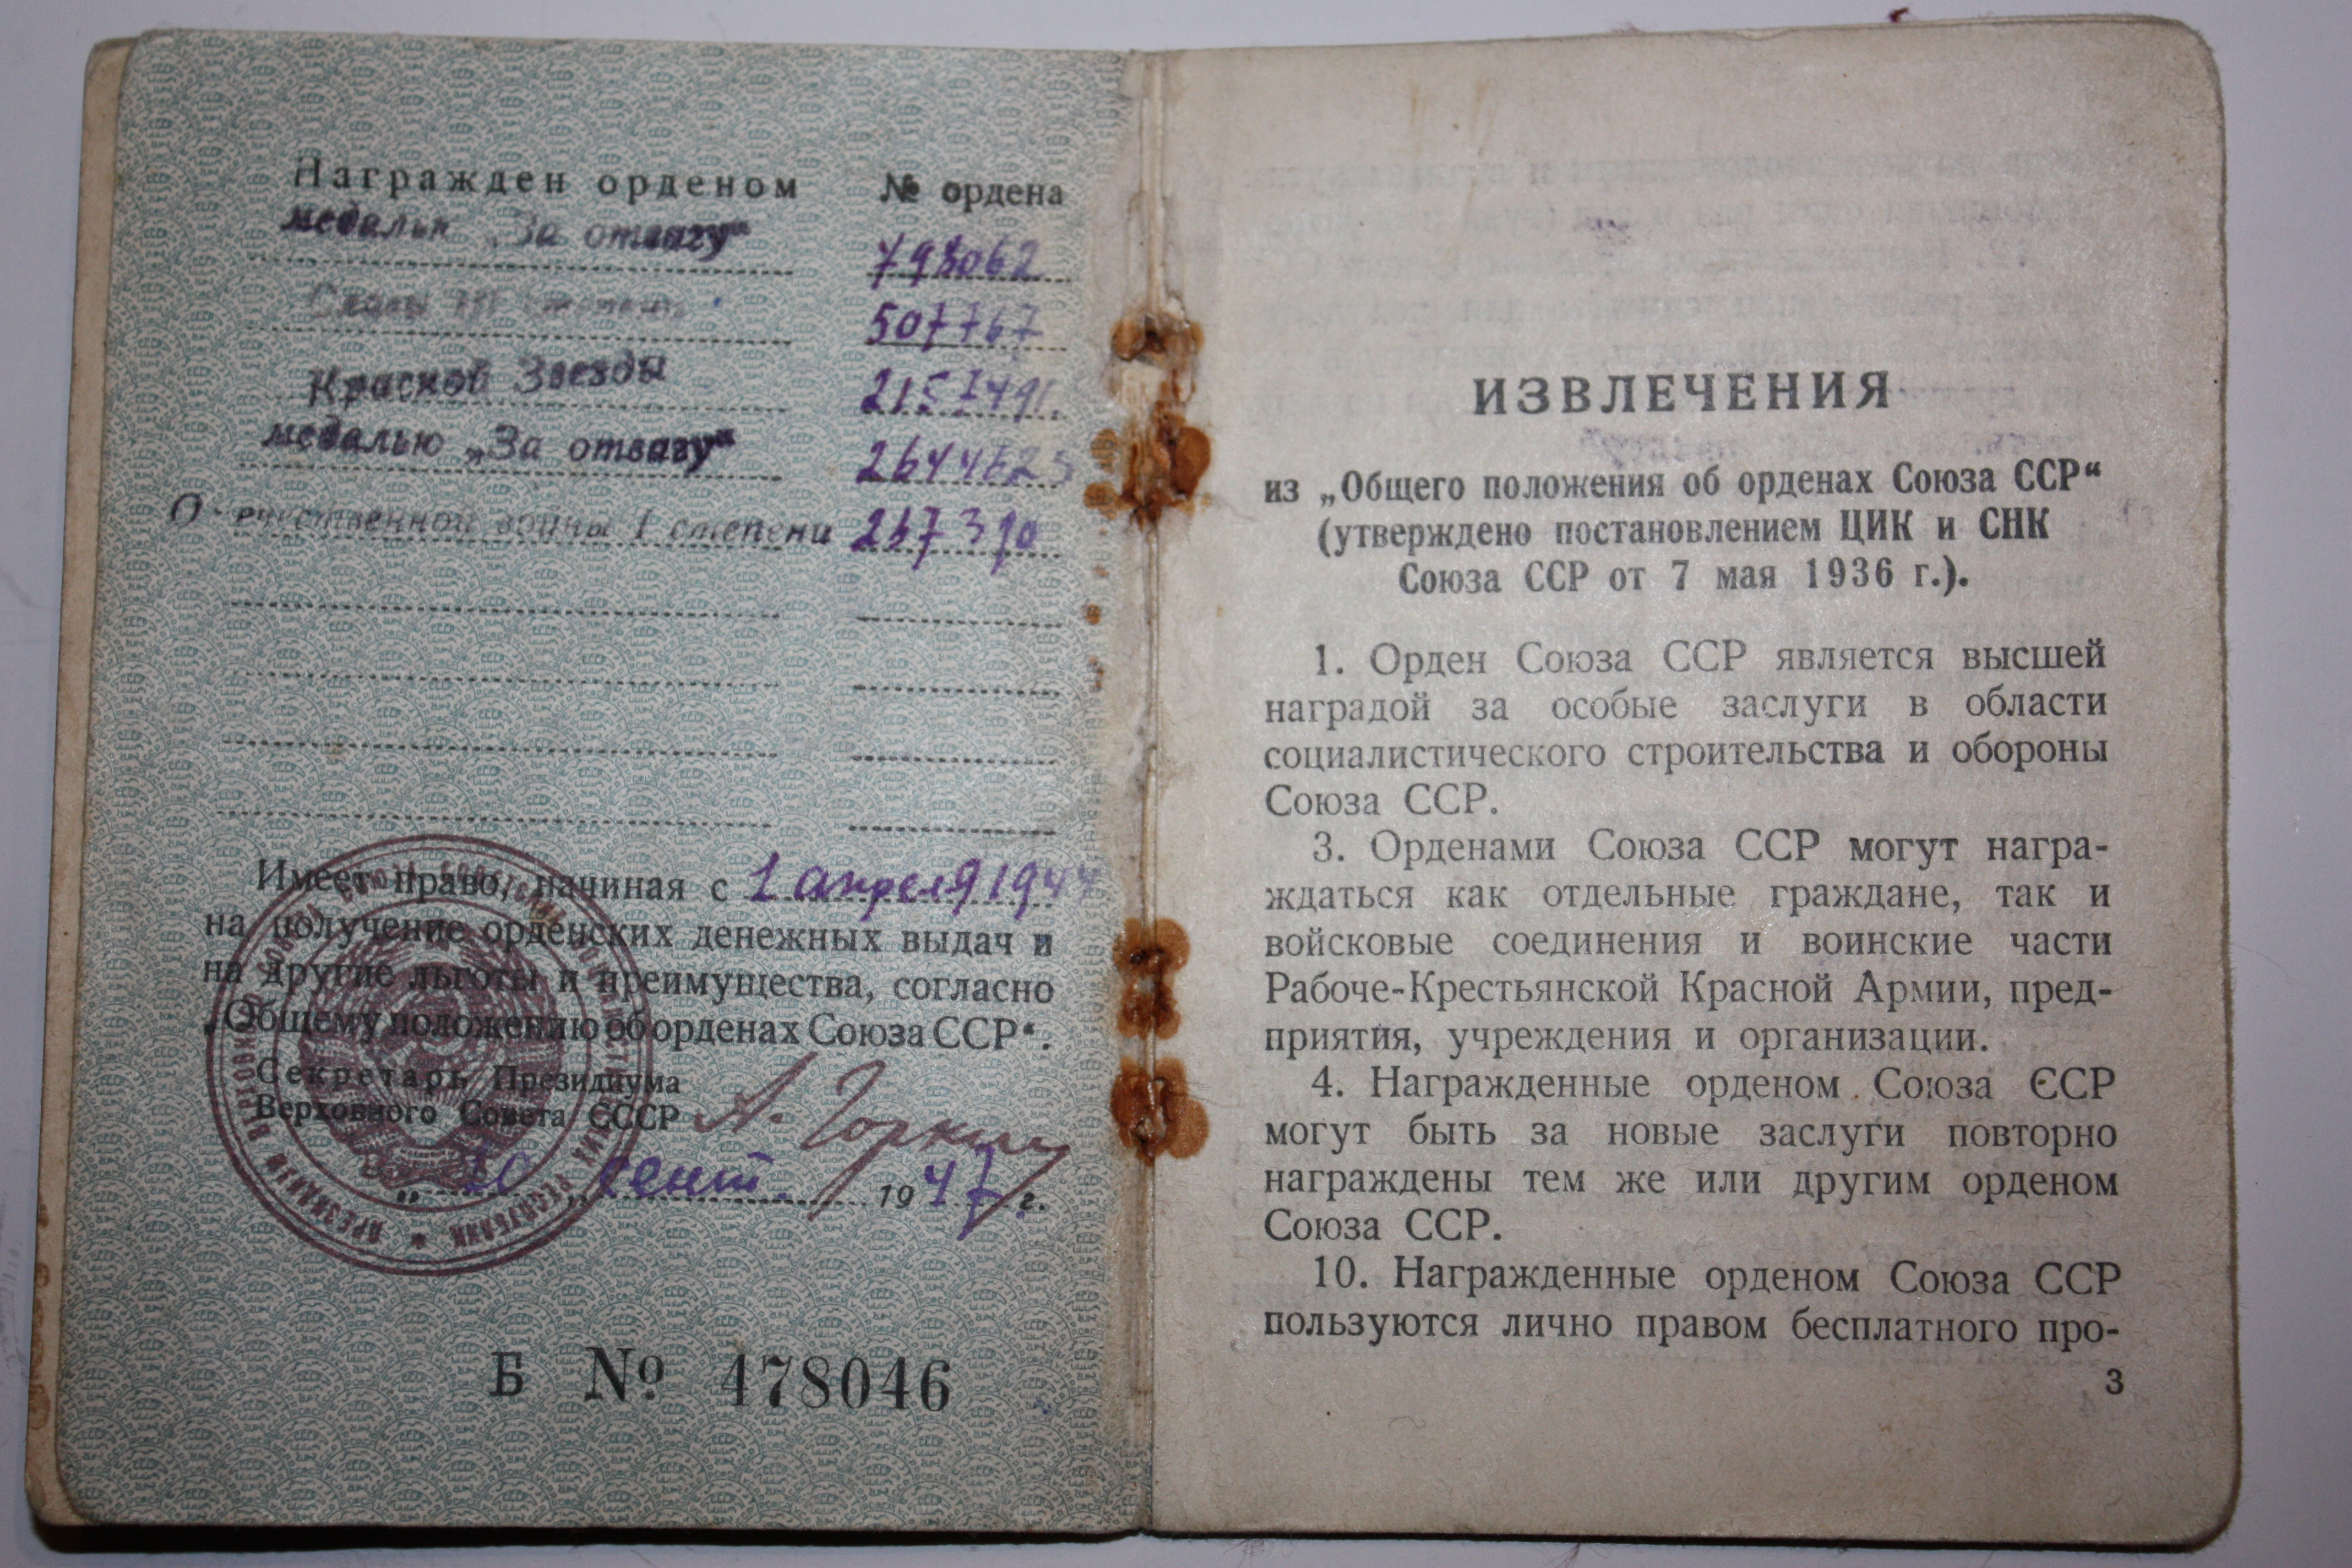 Награжден орденом № ордена
медалью „За отвагу“ 798062
Славы III степени 507767
Красной Звезды
медалью „За отвагу“
Отечественной войны I степени
Имеет право, начиная с 1 апреля 1944
на получение орденских денежных выдач и
на другие льготы и преимущества, согласно
„Общему положению об орденах Союза ССР“.
Секретарь Президиума
Верховного Совета СССР А. Горкин
„ сент. 1947 г.
Б № 478046
ИЗВЛЕЧЕНИЯ
из „Общего положения об орденах Союза ССР“
(утверждено постановлением ЦИК и СНК
Союза ССР от 7 мая 1936 г.).
1. Орден Союза ССР является высшей
наградой за особые заслуги в области
социалистического строительства и обороны
Союза ССР.
3. Орденами Союза ССР могут награ-
ждаться как отдельные граждане, так и
войсковые соединения и воинские части
Рабоче-Крестьянской Красной Армии, пред-
приятия, учреждения и организации.
4. Награжденные орденом Союза ССР
могут быть за новые заслуги повторно
награждены тем же или другим орденом
Союза ССР.
10. Награжденные орденом Союза ССР
пользуются лично правом бесплатного про-
3